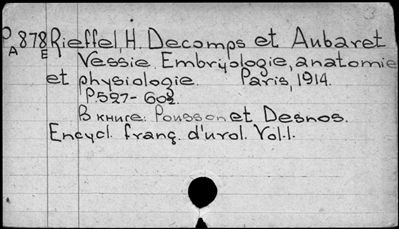 P 878 Rieffel, H. Decamps et Aubaret
A E Vessie. Embryologie, anatomie
et physiologie. Paris, 1914.
P. 527-602.
В книге: Pousson et Desnos.
Encycl. franç. d'urol. Vol. I.